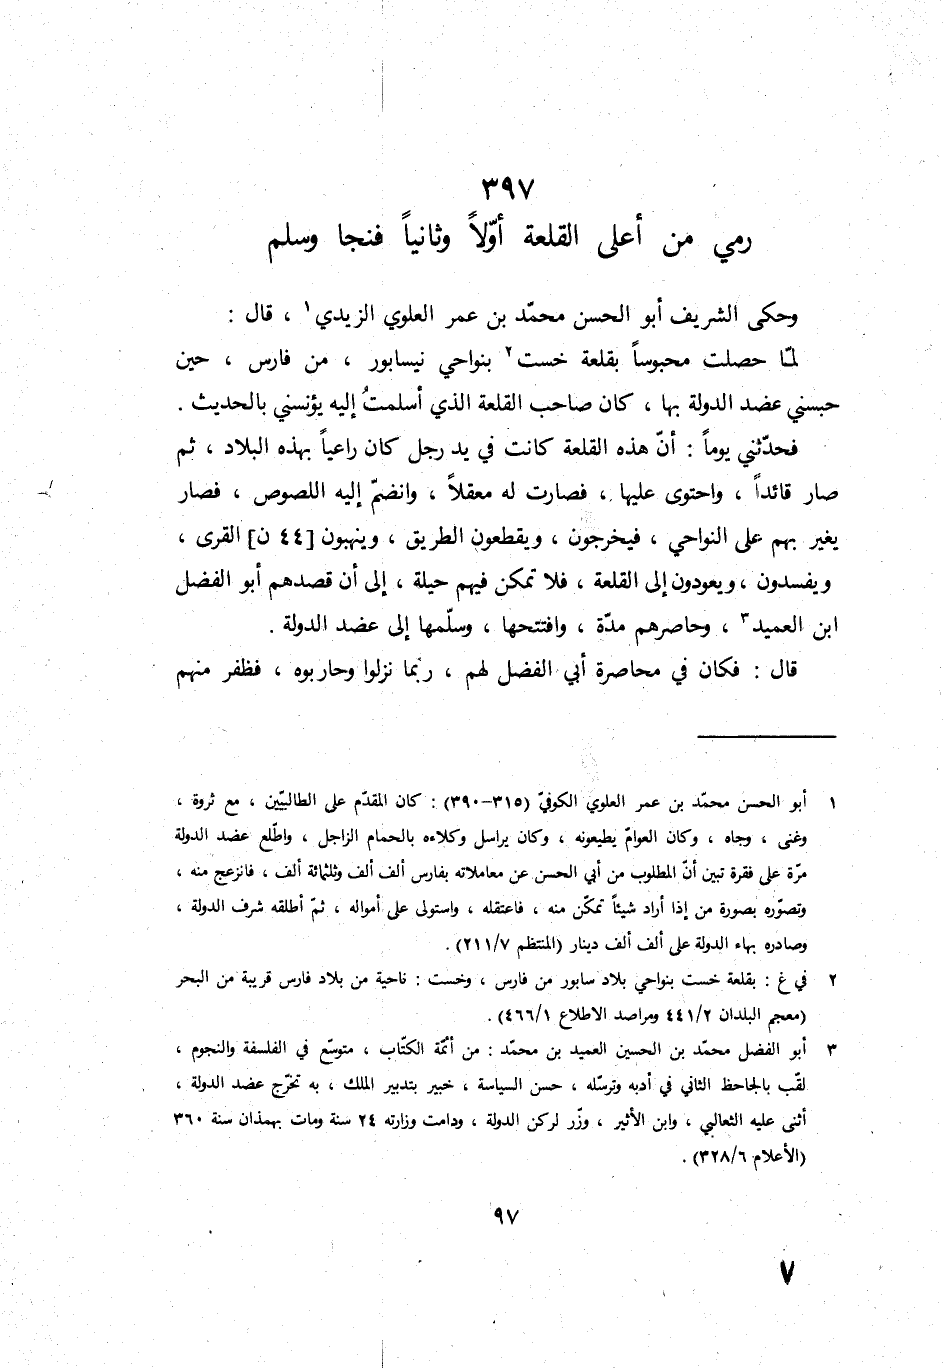 ٣٩٧
رمي من أعلى القلعة أوّلاً وثانياً فنجا وسلم
وحكى الشريف أبو الحسن محمّد بن عمر العلوي الزيدي١ ، قال :
لمّا حصلت محبوساً بقلعة خست٢ بنواحي نيسابور ، من فارس ، حين
حبسني عضد الدولة بها ، كان صاحب القلعة الذي أسلمتُ إليه يؤنسني بالحديث .
فحدّثني يوماً : أنّ هذه القلعة كانت في يد رجل كان راعياً بهذه البلاد ، ثم
صار قائداً ، واحتوى عليها ، فصارت له معقلاً ، وانضمّ إليه اللصوص ، فصار
يغير بهم على النواحي ، فيخرجون ، ويقطعون الطريق ، وينهبون [٤٤ ن] القرى ،
ويفسدون ، ويعودون إلى القلعة ، فلا تمكن فيهم حيلة ، إلى أن قصدهم أبو الفضل
ابن العميد٣ ، وحاصرهم مدّة ، وافتتحها ، وسلّمها إلى عضد الدولة .
قال : فكان في محاصرة أبي الفضل لهم ، ربّما نزلوا وحاربوه ، فظفر منهم
١ أبو الحسن محمّد بن عمر العلوي الكوفيّ (٣١٥-٣٩٠) : كان المقدّم على الطالبيّين ، مع ثروة ،
وغنى ، وجاه ، وكان العوامّ يطيعونه ، وكان يراسل وكلاءه بالحمام الزاجل ، واطّلع عضد الدولة
مرّة على فقرة تبين أنّ المطلوب من أبي الحسن عن معاملاته بفارس ألف ألف وثلثمائة ألف ، فانزعج منه ،
وتصوّره بصورة من إذا أراد شيئاً تمكّن منه ، فاعتقله ، واستولى على أمواله ، ثمّ أطلقه شرف الدولة ،
وصادره بهاء الدولة على ألف ألف دينار (المنتظم ٢١١/٧) .
٢ في غ : بقلعة خست بنواحي بلاد سابور من فارس ، وخست : ناحية من بلاد فارس قريبة من البحر
(معجم البلدان ٤٤١/٢ ومراصد الاطلاع ٤٦٦/١) .
٣ أبو الفضل محمّد بن الحسين العميد بن محمّد : من أئمّة الكتّاب ، متوسّع في الفلسفة والنجوم ،
لقّب بالجاحظ الثاني في أدبه وترسّله ، حسن السياسة ، خبير بتدبير الملك ، به تخرّج عضد الدولة ،
أثنى عليه الثعالبي ، وابن الأثير ، وزّر لركن الدولة ، ودامت وزارته ٢٤ سنة ومات بهمذان سنة ٣٦٠
(الأعلام ٣٢٨/٦) .
٩٧
٧